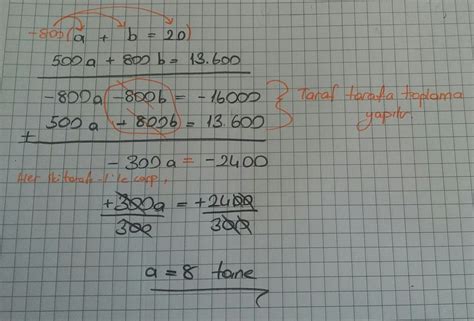 -800(a + b = 20)
500a + 800b = 13.600
-800a -800b = -16000
+ 500a + 800b = 13.600
Taraf tarafa toplama
yapılır.
-300a = -2400
Her iki tarafı -1 ile çarp,
+300a = +2400
300 300
a = 8 tane